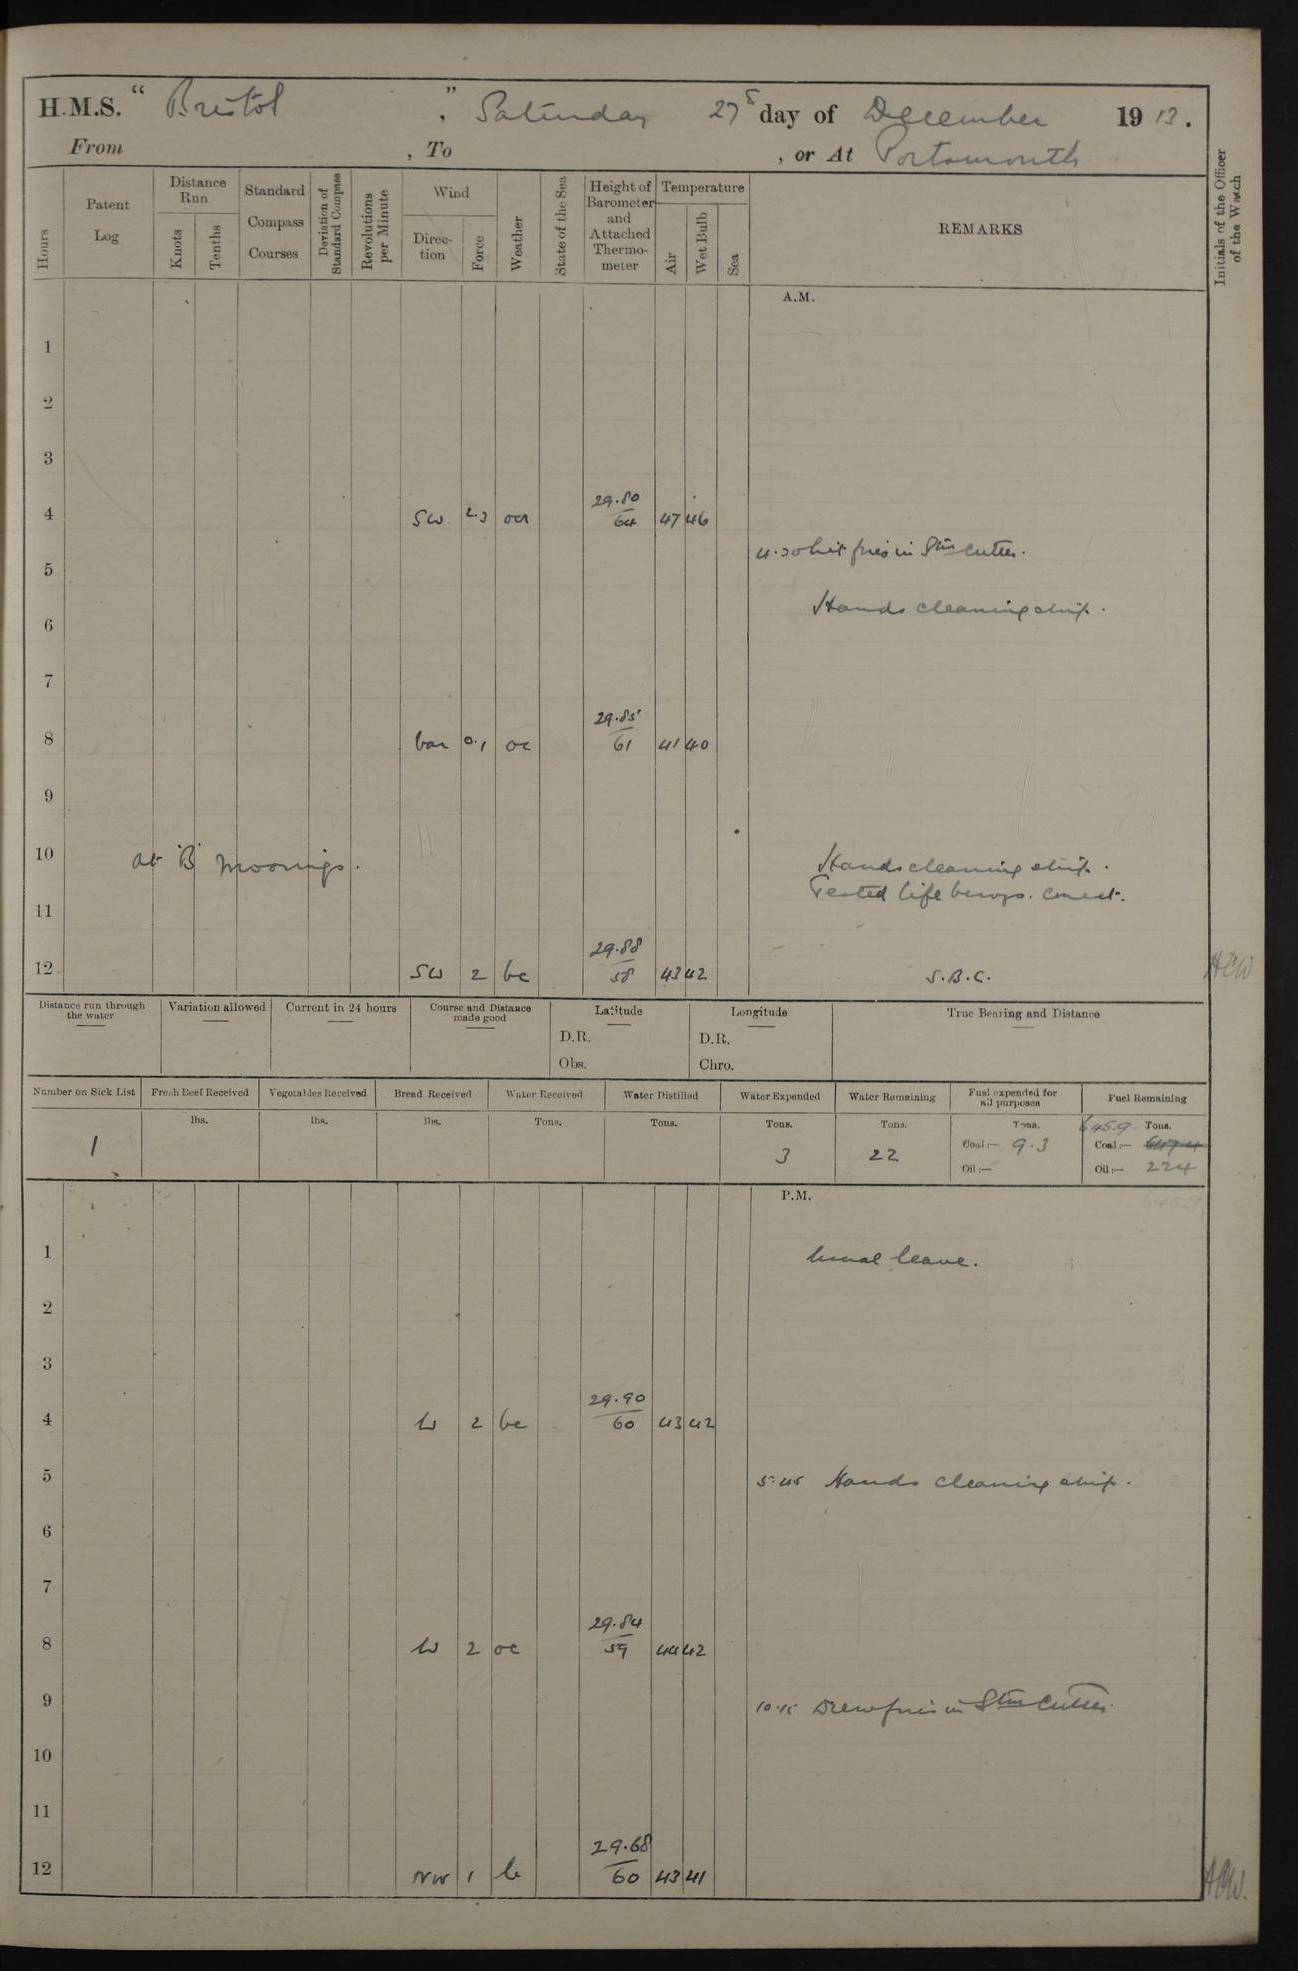 H.M.S. "Bristol", Saturday 27 day of December 1913.
From , To , or At Portsmouth
Hours
Patent Log
Distance Run
Knots
Tenths
Standard Compass Courses
Deviation of Standard Compass
Revolutions per Minute
Wind
Direction
Force
Weather
State of the Sea
Height of Barometer and Attached Thermometer
Temperature
Air
Wet Bulb
Sea
REMARKS
Initials of the Officer of the Watch
A.M.
1
2
3
4 SW 2.3 29.80 64 47 46
4.30 in Stm Cutter.
5
Hands cleaning ship.
6
7
8 0.1 oc 29.85 61 41 40
9
10 at 'B' moorings. Hands cleaning ship.
Tested life buoys. Correct.
11
12 SW 2 bc 29.88 58 43 42 S.B.C.
Distance run through the water
Variation allowed
Current in 24 hours
Course and Distance made good
Latitude
D.R.
Obs.
Longitude
D.R.
Chro.
True Bearing and Distance
Number on Sick List
1
Fresh Beef Received
lbs.
Vegetables Received
lbs.
Bread Received
lbs.
Water Received
Tons.
Water Distilled
Tons.
Water Expended
Tons.
3
Water Remaining
Tons.
22
Fuel expended for all purposes
Tons.
Coal:— 9.3
Oil:—
Fuel Remaining
645.9 Tons.
Coal:—
Oil:— 224
P.M.
1 Usual leave.
2
3
4 W 2 bc 29.90 60 43 42
5 5.45 Hands cleaning ship.
6
7
8 W 2 oc 29.84 59 44 42
9 10.15 Drew fires in Stm Cutter.
10
11
12 NW 1 b 29.68 60 43 41